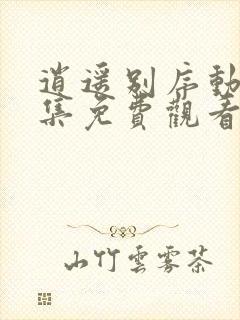 逍遥别序動
集免費觀看
山竹雲霧茶